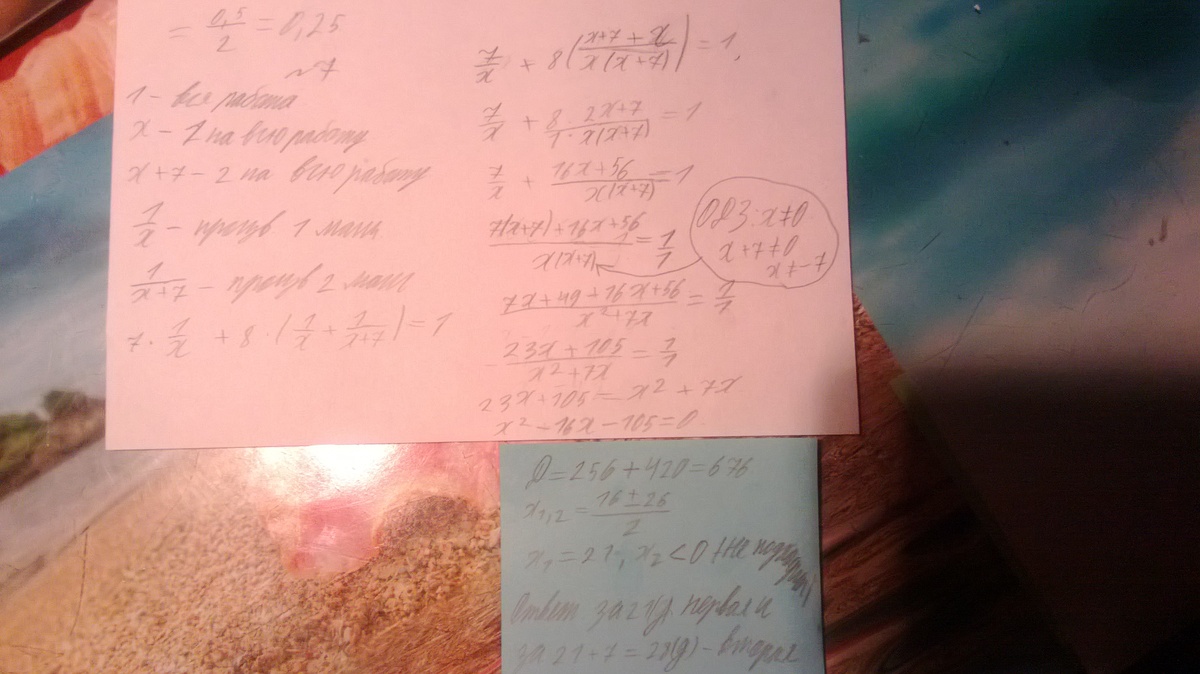 = 0,5/2 = 0,25
№7
1 - вся работа
x - 1 на всю работу
x+7 - 2 на всю работу
1/x - произв 1 маш
1/(x+7) - произв 2 маш
7 · 1/x + 8 · (1/x + 1/(x+7)) = 1
7/x + 8((x+7+x)/(x(x+7))) = 1,
7/x + (8 · 2x+7)/(1 · x(x+7)) = 1
7/x + (16x+56)/(x(x+7)) = 1
(7(x+7)+16x+56)/(x(x+7)) = 1/1
ОДЗ: x≠0
x+7≠0
x≠-7
(7x+49+16x+56)/(x²+7x) = 1/1
(23x+105)/(x²+7x) = 1/1
23x+105 = x² + 7x
x² - 16x - 105 = 0
D = 256 + 420 = 676
x₁,₂ = (16 ± 26)/2
x₁ = 21, x₂ < 0 (не подходит)
Ответ за 21 первая и
за 21+7 = 28(д) - вторая